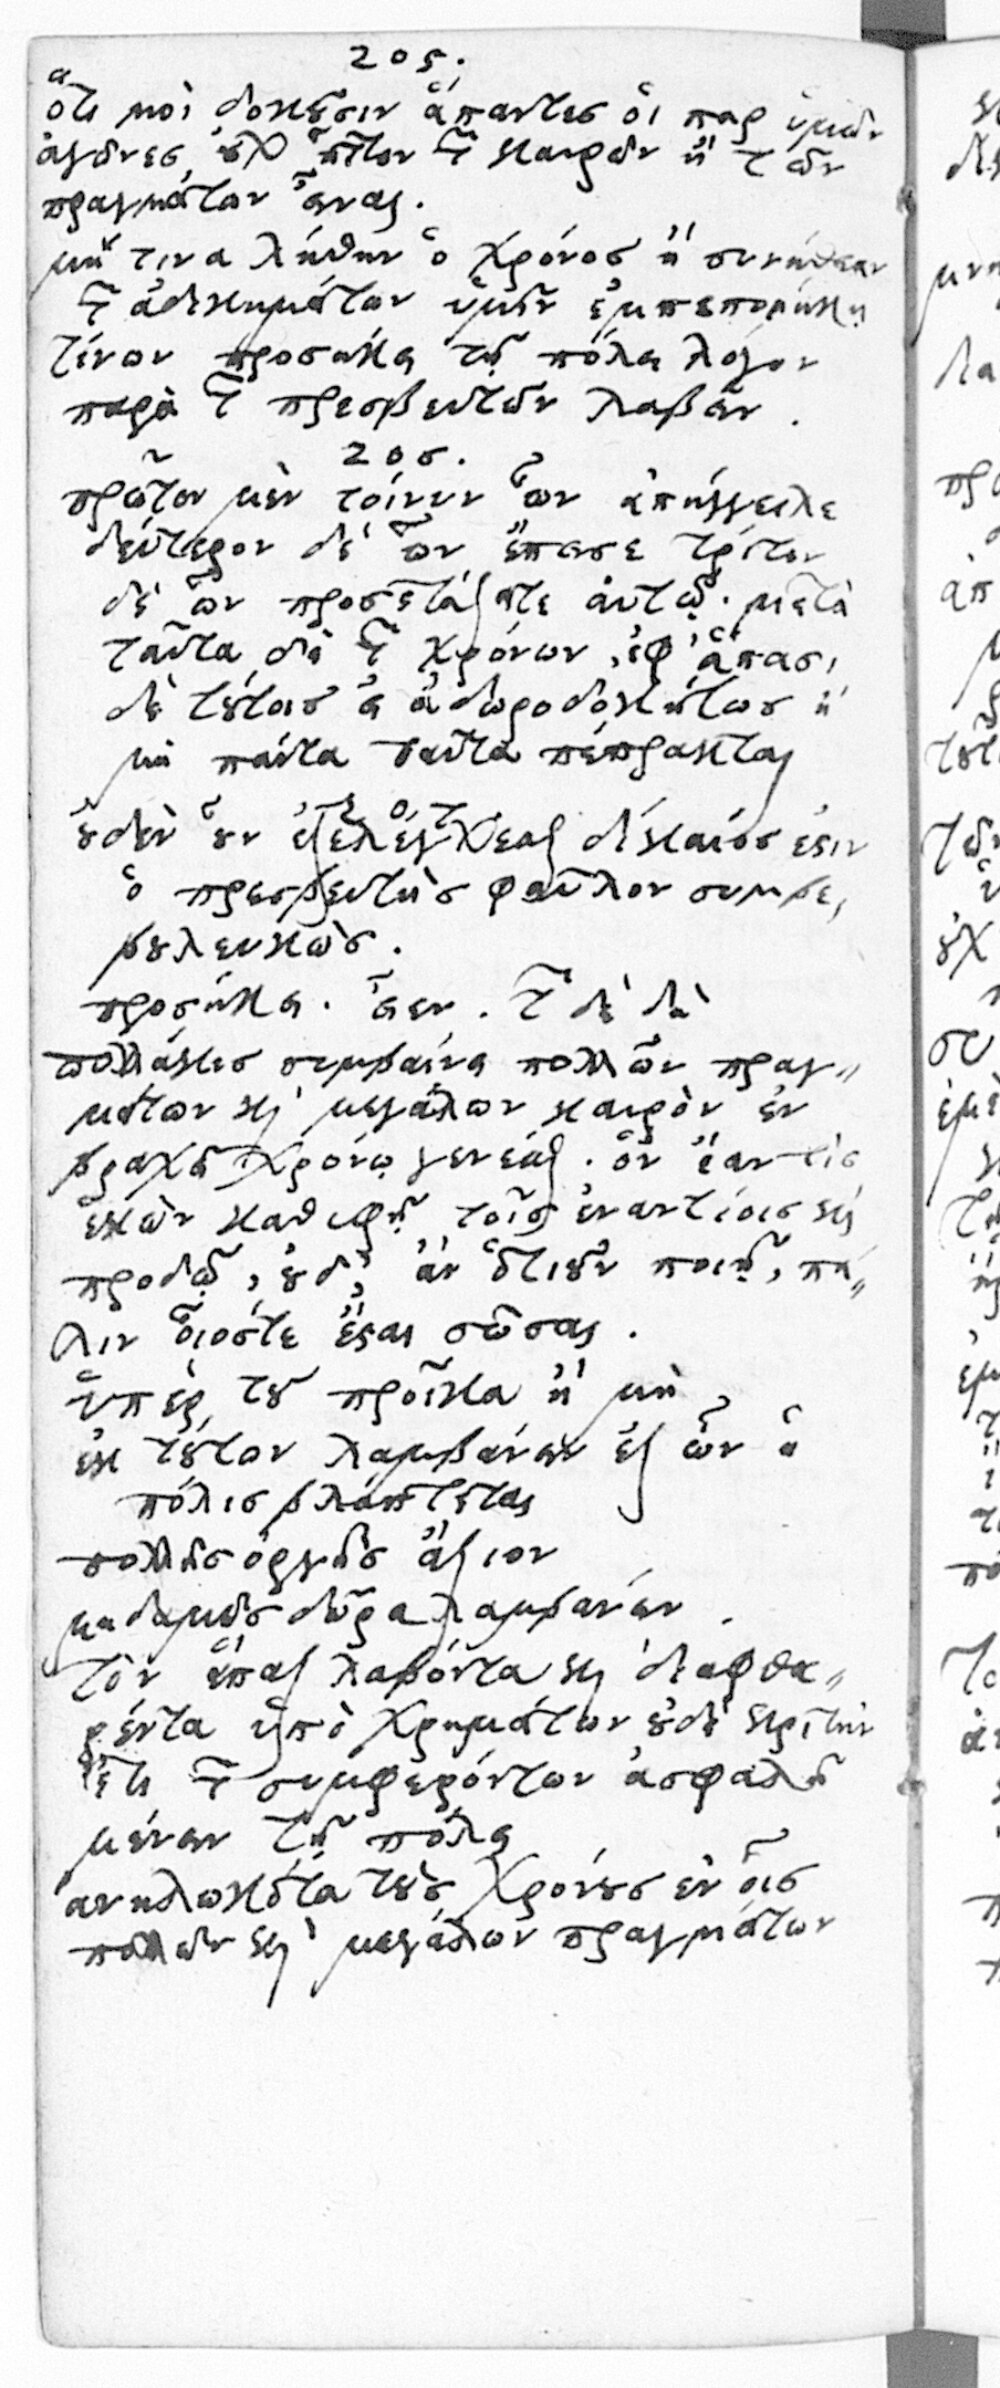 205.
ὅτι μοὶ δοκοῦσιν ἅπαντες οἱ παρ ὑμῖν
ἀγῶνες, οὐχ ἧττον τῶν καιρῶν ἢ τῶν
πραγμάτων εἶναι.
μή τινα λήθην ὁ χρόνος ἢ συνήθειαν
τῶν ἀδικημάτων ὑμῖν ἐμπεποιήκῃ
τίνων προσήκει τῇ πόλει λόγον
παρὰ τῶν πρεσβευτῶν λαβεῖν.
20σ.
πρῶτον μὲν τοίνυν ὧν ἀπήγγειλε
δεύτερον δὲ ὧν ἔπεισε τρίτον
δὲ ὧν προσετάξατε αὐτῷ. μετὰ
ταῦτα δὲ τῶν χρόνων, ἐφ ἅπασι
δὲ τούτοις εἰ ἀδωροδοκήτως ἢ
μὴ πάντα ταῦτα πέπρακται
οὐδὲν οὖν ἐξελέγχεσθαι δίκαιός ἐστιν
ὁ πρεσβευτὴς φαῦλον συμβε,
βουλευκὼς.
προσήκει. εἶεν. τῶν δὲ δὴ
πολλάκις συμβαίνει πολλῶν πραγ〃
μάτων καὶ μεγάλων καιρὸν ἐν
βραχεῖ χρόνῳ γενέσθαι. ὃν ἐάν τις
ἑκὼν καθυφῇ τοῖς ἐναντίοις καὶ
προδῷ, οὐδ, ἂν ὁτιοῦν ποιῇ, πά〃
λιν οἷόστε ἔσται σῶσαι.
ὑπὲρ τοῦ προῖκα ἢ μὴ
ἐκ τούτων λαμβάνειν ἐξ ὧν ἡ
πόλις βλάπτεται
πολλῆς ὀργῆς ἄξιον
μηδαμῶς δῶρα λαμβάνειν.
τὸν ἅπαξ λαβόντα καὶ διαφθα〃
ρέντα ὑπὸ χρημάτων οὐδὲ κριτὴν
ἔτι τῶν συμφερόντων ἀσφαλῆ
μένειν τῇ πόλει
ἀνῃλωκότα τοὺς χρόνους ἐν οἷς
πολλῶν καὶ μεγάλων πραγμάτων